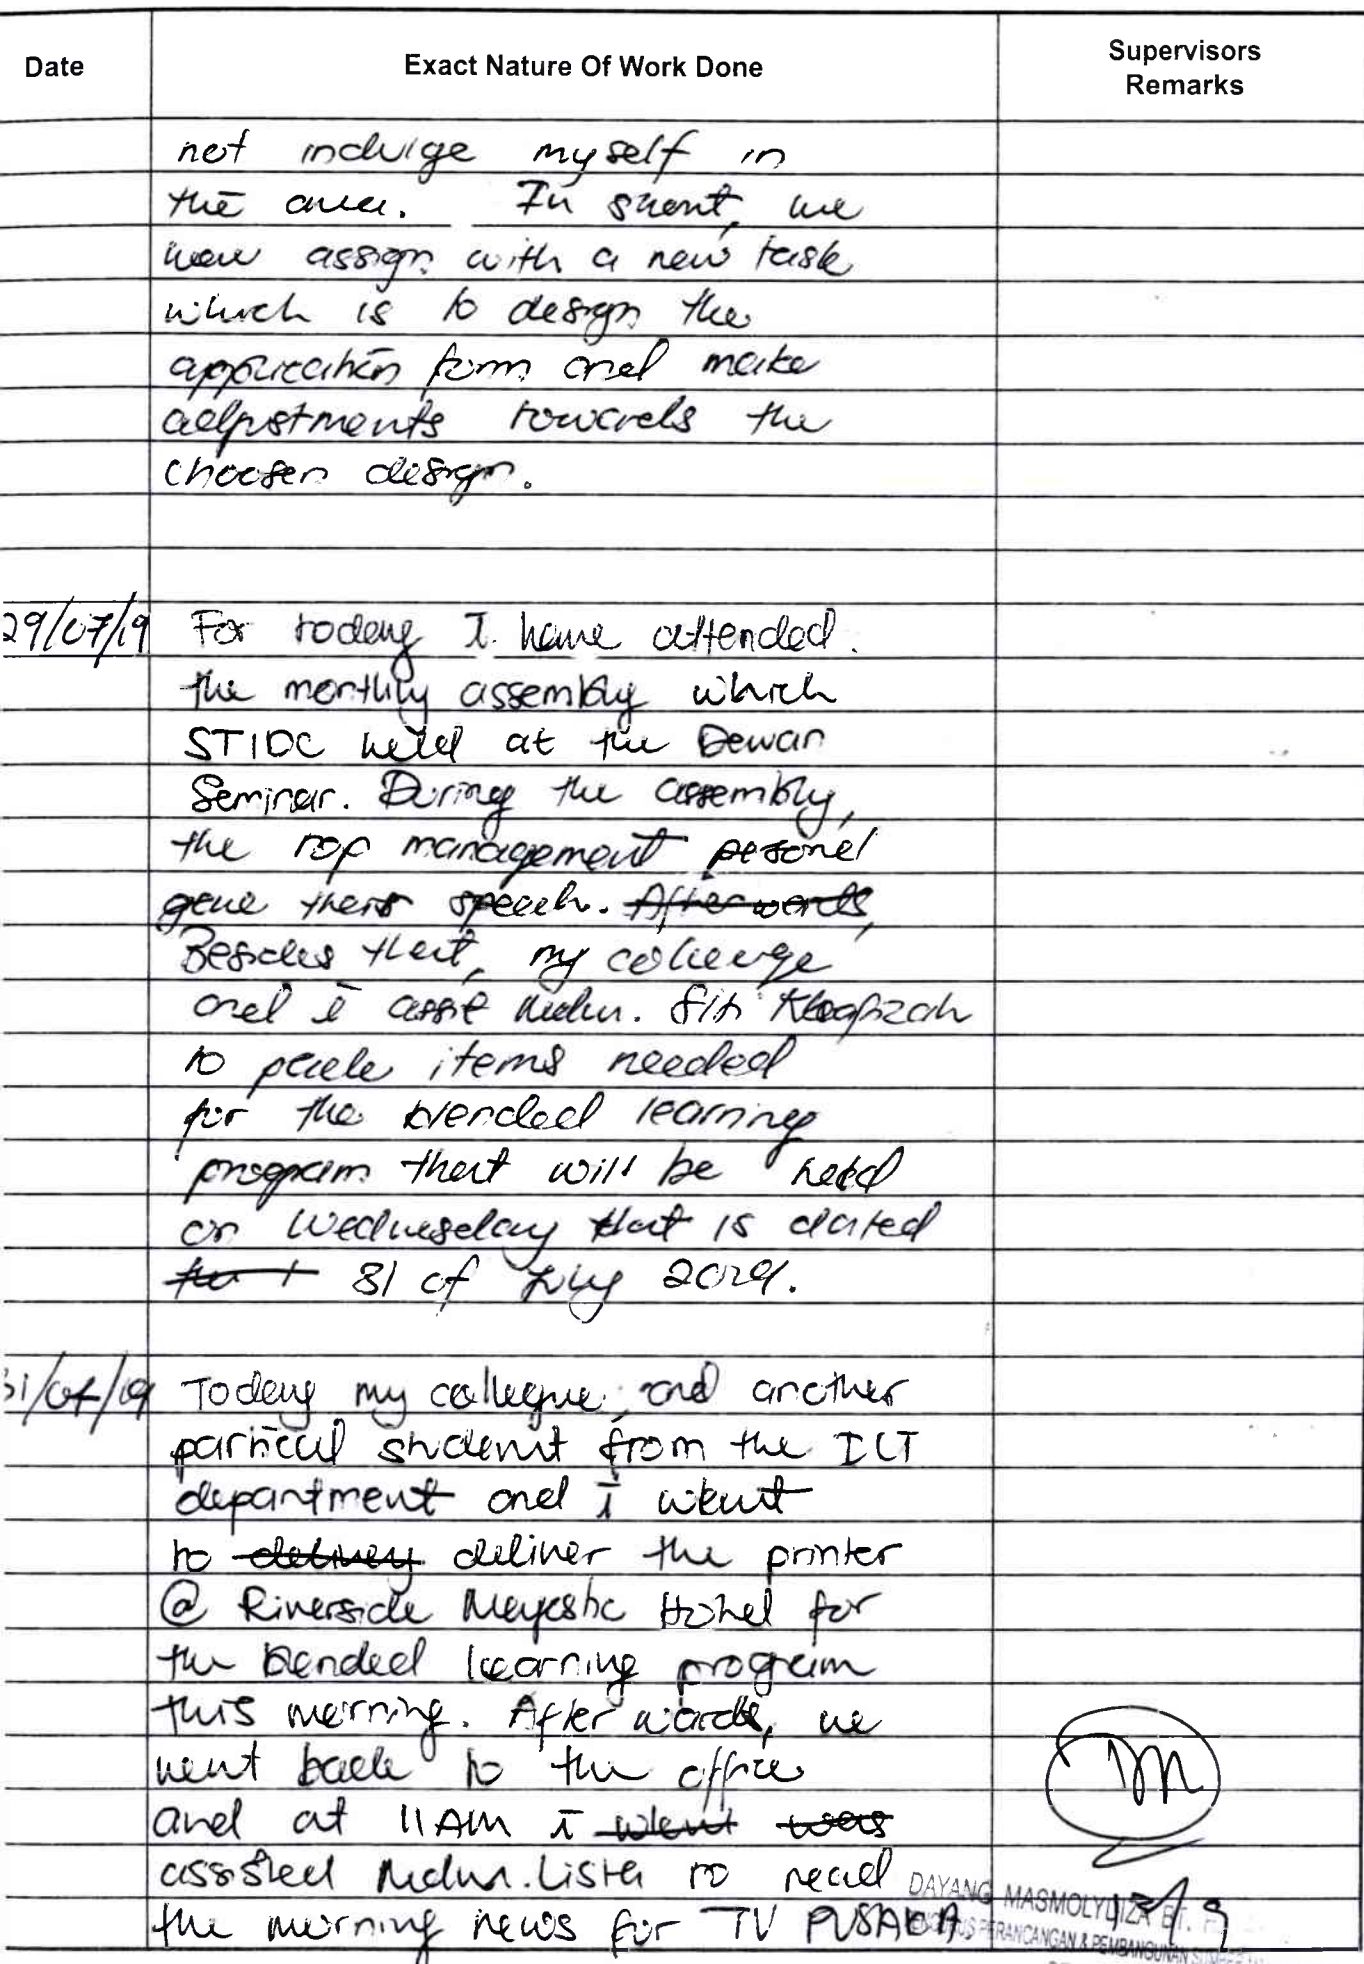 Date Exact Nature Of Work Done Supervisors Remarks
not indulge myself in
the area. In short, we
were assign with a new task
which is to design the
application form and make
adjustments towards the
choosen design.
29/07/19 For today I have attended.
the monthly assembly which
STIDC held at the Dewan
Seminar. During the assembly,
the top management personel
gave there speech. Afterwords,
Besides that, my colleuge
and i assit Mdm. Siti
to pack items needed
for the blended learning
program that will be held
on Wednesday that is dated
31 of July 2019.
31/07/19 Today my collegue, and another
partical student from the ICT
department and i went
to delivey deliver the printer
@ Riverside Majestic Hotel for
the blended learning program
this morning. Afterwards, we
went back to the office
and at 11AM i went was
assisted Mdm. Lista to read
the morning news for TV PUSAKA
DAYANG MASMOLYDIZA BT.
PERANCANGAN & PEMBANGUNAN